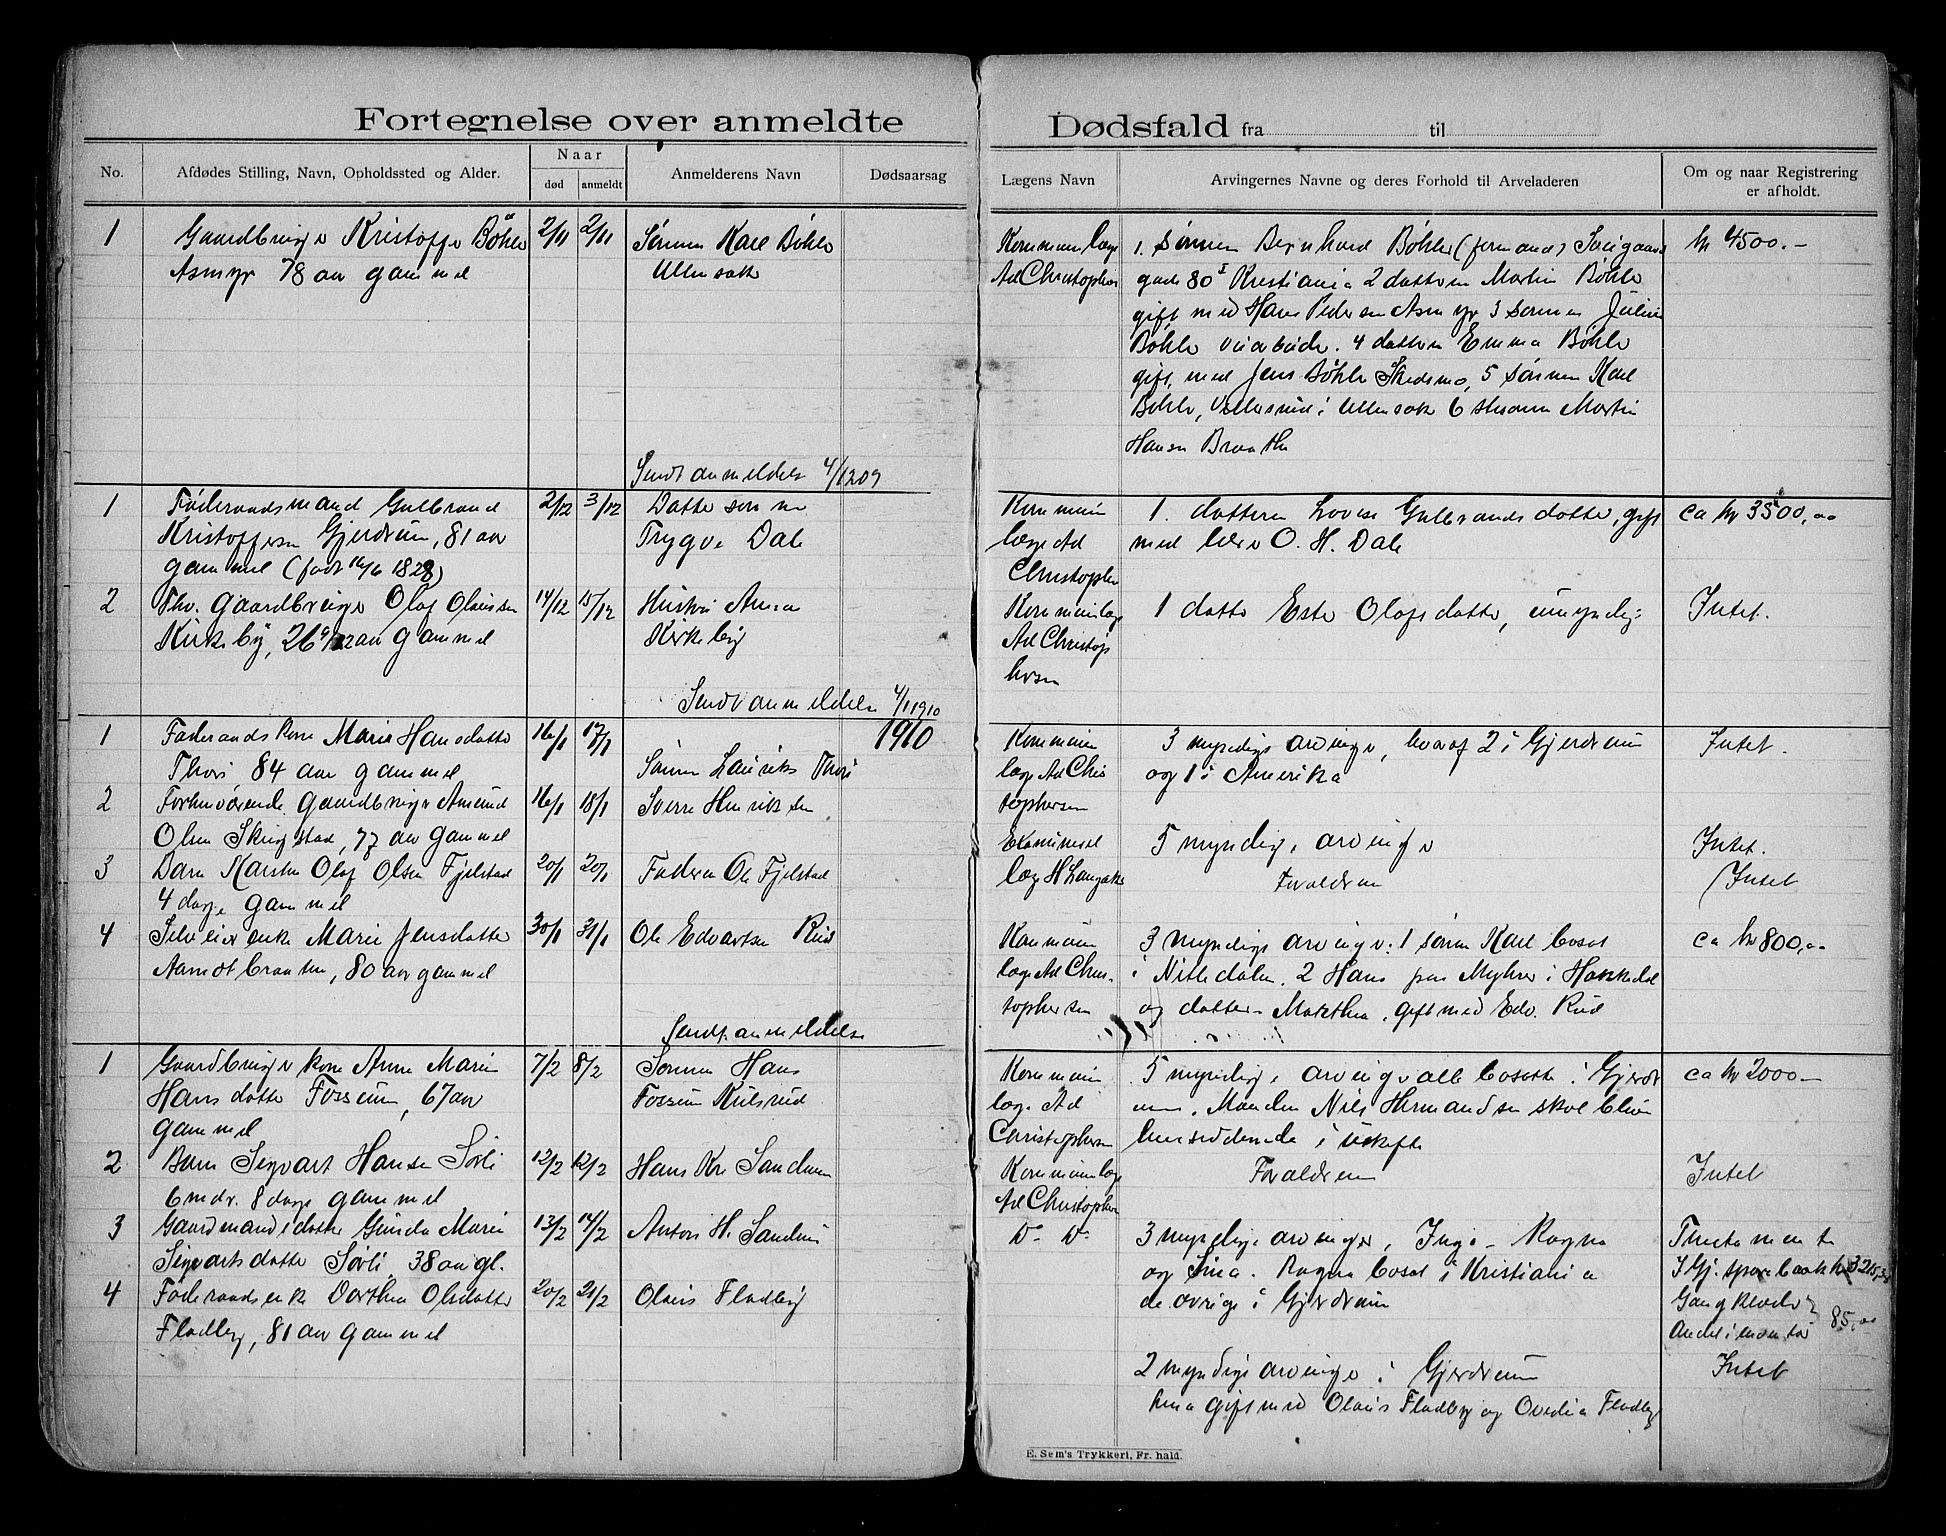 Fortegnelse over anmeldte
No.
Afdødes Stilling, Navn, Opholdssted og Alder.
Naar
død
anmeldt
Anmelderens Navn
Dødsaarsag
1
Gaardbruger Kristoffer Bøhler
Asmyr 78 aar gammel
2/11
2/11
Sønnen Karl Bøhler
Ullensaker
Sendt anmeldelse 4/12 09
1
Føderaadsmand Gulbrand
Kristoffersen Gjerdrum, 81 aar
gammel (født 16/6 1828)
2/12
3/12
Dattersønnen
Trygve Dale
2
Fhv. Gaardbruger Olaf Olaussen
Kirkeby, 26 9/12 aar gammel
14/12
15/12
Hustru Anna
Kirkeby
Sendt anmeldelse 4/1 1910
1910
1
Føderaadskone Marie Hansdatter
Thori 84 aar gammel
16/1
17/1
Sønnen Lauriks Thori
2
Forhenværende Gaardbruger Amund
Olsen Skrugstad, 77 aar gammel
16/1
18/1
Sverre Henriksen
3
Barn Karsten Olaf Olsen Fjelstad
4 dage gammel
20/1
20/1
Faderen Ole Fjelstad
4
Selveierenke Marie Jensdatter
Aamodtbraaten, 80 aar gammel
30/1
31/1
Ole Edvartsen Rud
Sendt anmeldelse
1
Gaardbrugerkone Anne Marie
Hansdatter Fossum, 67 aar
gammel
7/2
8/2
Sønnen Hans
Fossum Kulsrud
2
Barn Sigvart Hansen Sørli
6 mdr. 8 dage gammel
12/2
12/2
Hans Kr Sandum
3
Gaardmandsdatter Gunda Marie
Sigvartsdatter Sørli, 38 aar gl.
13/2
14/2
Anton H. Sandum
4
Føderaadsenke Dorthea Olsdatter
Fladby, 81 aar gammel
20/2
21/2
Olaus Fladby
Dødsfald fra til
Lægens Navn
Arvingernes Navne og deres Forhold til Arveladeren
Om og naar Registrering
er afholdt.
Kommunelæge
Ad Christophersen
1. sønnen Bernhard Bøhler (formand) Sveigaards
gade 80 I Kristiania 2 datteren Martin Bøhler
gift med Hans Pedersen Asmyr 3 sønnen Julius
Bøhler veiarbeider. 4 datteren Emma Bøhler
gift med Jens Bøhler Skedsmo, 5 sønnen Karl
Bøhler, i Ullensaker 6 Martin
Hansen Braathe
kr 4500.-
Kommune
læge Ad
Christophersen
1. datteren Lovise Gulbrandsdatter, gift
med lærer O. H. Dale
ca kr 3500,00
Kommunelæge
Ad Christop
hersen
1 datter Ester Olafsdatter, umyndig
Intet.
Kommune
læge Ad Chris
tophersen
3 myndige arvinger, hvoraf 2 i Gjerdrum
og 1 i Amerika
Intet.
læge H Langaker
5 myndige arvinger
Intet.
Forældrene
Intet
Kommune
læge Ad Chris-
tophersen
3 myndige arvinger: 1 sønnen Karl bosat
i Nittedalen. 2 Hans paa Myhrer i Hakkedal
og datteren Marthea, gift med Edv. Rud
ca kr 800,00
Kommune
læge Ad
Christophersen
5 myndige arvinger alle bosatte i Gjerdr
um. Manden Nils Hermandsen skal blive
hensiddende i uskifte
ca kr 2000-
Kommunelæge
Ad Christophersen
Forældrene
Intet
Do Do
3 myndige arvinger, Inga - Ragna
og Lina. Ragna bosat i Kristiania
de øvrige i Gjerdrum
Testamente
I Gj. sparebank kr
Gangklæder
Andel i inventar 85,00
2 myndige arvinger i Gjerdrum
gift med Olaus Fladby og Ovedia Fladby
Intet
E. Sem's Trykkeri, Fr. hald.